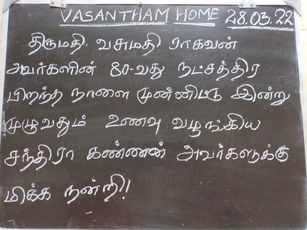 VASANTHAM HOME 28.03.22
திருமதி. வசுமதி ராகவன்
அவர்களின் 80-வது நட்சத்திர
பிறந்த நாளை முன்னிட்டு இன்று
முழுவதும் உணவு வழங்கிய
சந்திரா கண்ணன் அவர்களுக்கு
மிக்க நன்றி!